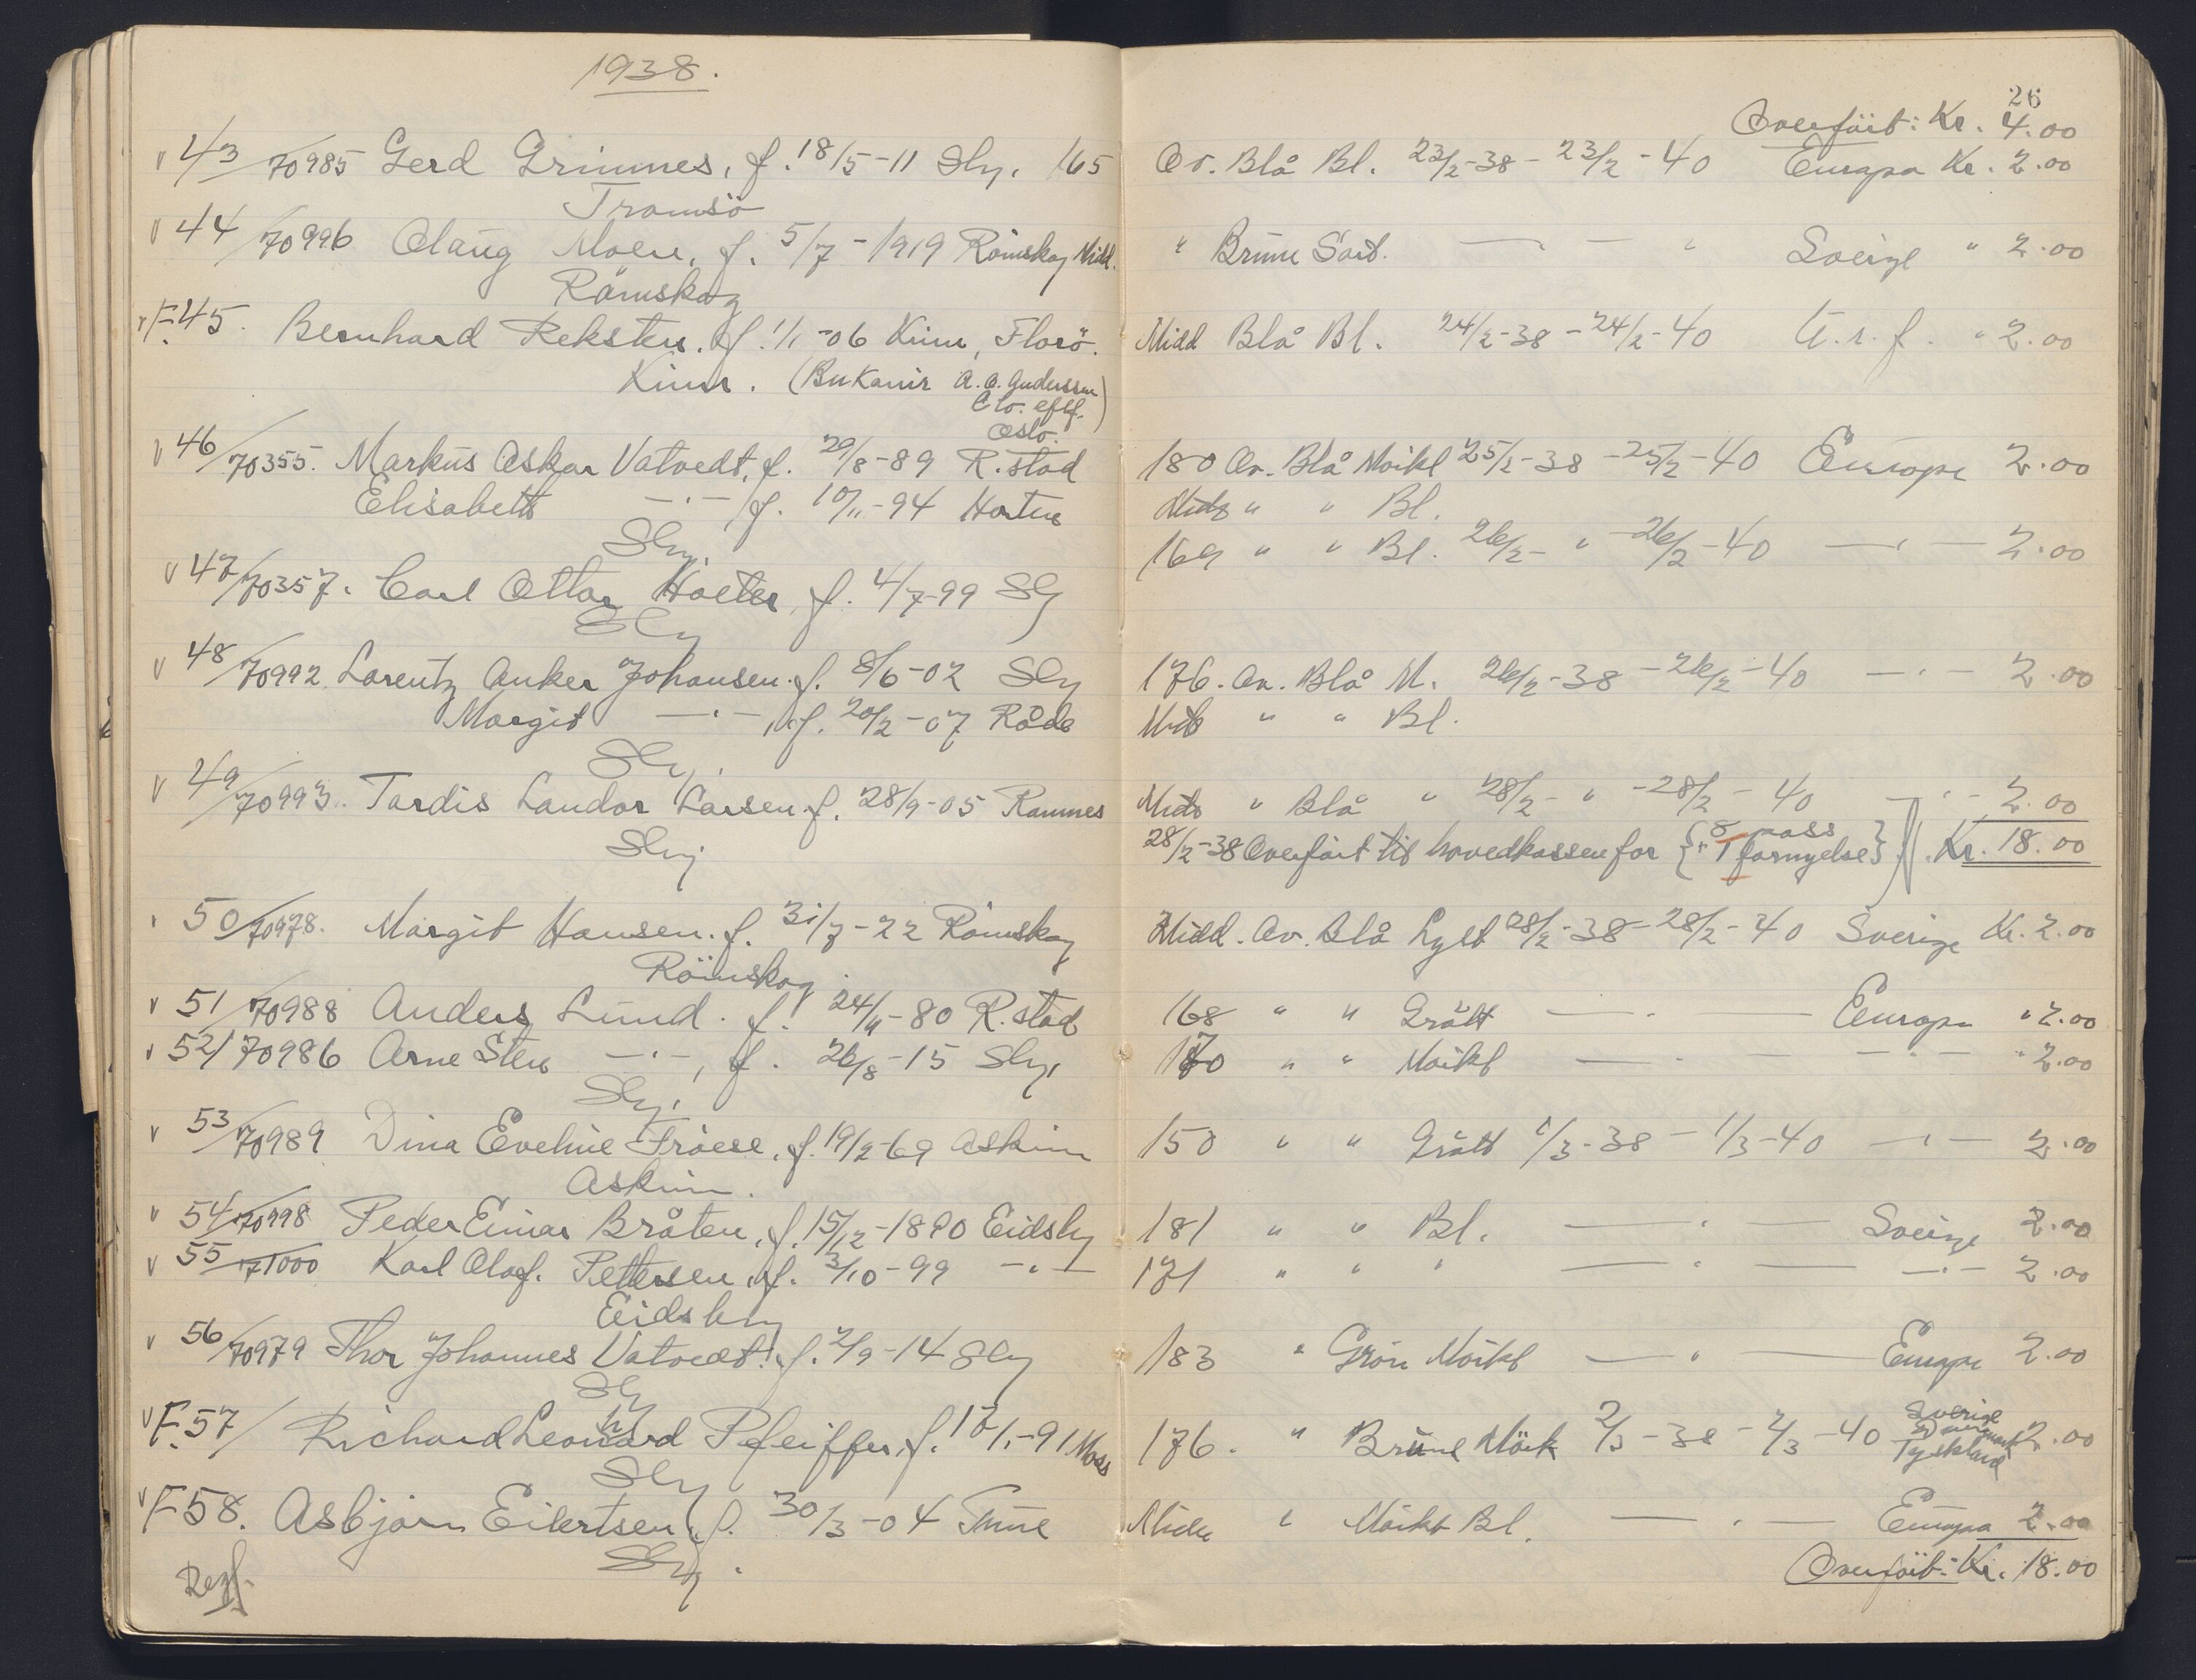 1938.
43/70985 Gerd Grimnes, f. 18/5-11 Sby. 165
Tromsö
44/70996 Olaug Moen, f. 5/7-1919 Römskog Midd.
Römskog
F.45. Bernhard Reksten. f. 1/1-06 Kinn, Florö.
Kinn. (Bukanir A.O. Anderssen
& Co. eftf.
Oslo.)
46/70355. Markus Oskar Vatvedt, f. 29/8-89 R.stad
Elisabeth —·— f. 10/11-94 Horten
Sby.
47/70357. Carl Ottar Holter, f. 4/7-99 Sby
Sby
48/70992 Lorentz Anker Johansen. f. 8/6-02 Sby
Margit —·—, f. 20/2-07 Råde
Sby.
49/70993. Tordis Landor Larsen. f. 28/9-05 Ramnes
Sby
50/70978. Margit Hansen. f. 31/7-22 Römskog
Römskog.
51/70988 Anders Lund. f. 24/11-80 R.stad
52/70986 Arne Sten —·—, f. 26/8-15 Sby.
Sby.
53/70989 Dina Eveline Fröese, f. 19/2-69 Askim
Askim.
54/70998 Peder Einar Bråten, f. 15/12-1890 Eidsby
55/71000 Karl Olaf. Pettersen, f. 3/10-99 —·—
Eidsby
56/70979 Thor Johannes Vatvedt. f. 2/9-14 Sby
Sby
F.57/ Richard Leonhard Pfeiffer, f. 17/1-91 Moss
Sby
F.58. Asbjörn Eilertsen, f. 30/3-04 Tune
Sby.
26
Overført: Kr. 4.00
Ov. Blå Bl. 23/2-38 - 23/2-40 Europa Kr. 2.00
" Brune Sort. —·— " Sverige " 2.00
Midd Blå Bl. 24/2-38 - 24/2-40 U.s.f. " 2.00
180 Ov. Blå Mörkt 25/2-38 - 25/2-40 Europa 2.00
Midd " " Bl.
169 " " Bl. 26/2- " - 26/2-40 —·— 2.00
176. Ov. Blå M. 26/2-38 - 26/2-40 —·— 2.00
Midd " " Bl.
Midd " Blå " 28/2- " - 28/2-40 —·— 2.00
28/2-38 Overført til hovedkassen for {8 pass
" 1 fornyelse} Kr. 18.00
Midd. Ov. Blå Lyst 28/2-38 - 28/2-40 Sverige Kr. 2.00
168 " " Grått —·— Europa " 2.00
170 " " Mörkt —·— —·— " 2.00
150 " " Grått 1/3-38 - 1/3-40 —·— 2.00
181 " " Bl. —·— Sverige 2.00
171 " " " —·— —·— 2.00
183 " Grön Mörkt —·— Europa 2.00
176. " Brune Mörk 2/3-38 - 2/3-40 Sverige
Danmark
Tyskland 2.00
Midd " Mörkt Bl. —·— Europa 2.00
Overført: Kr. 18.00